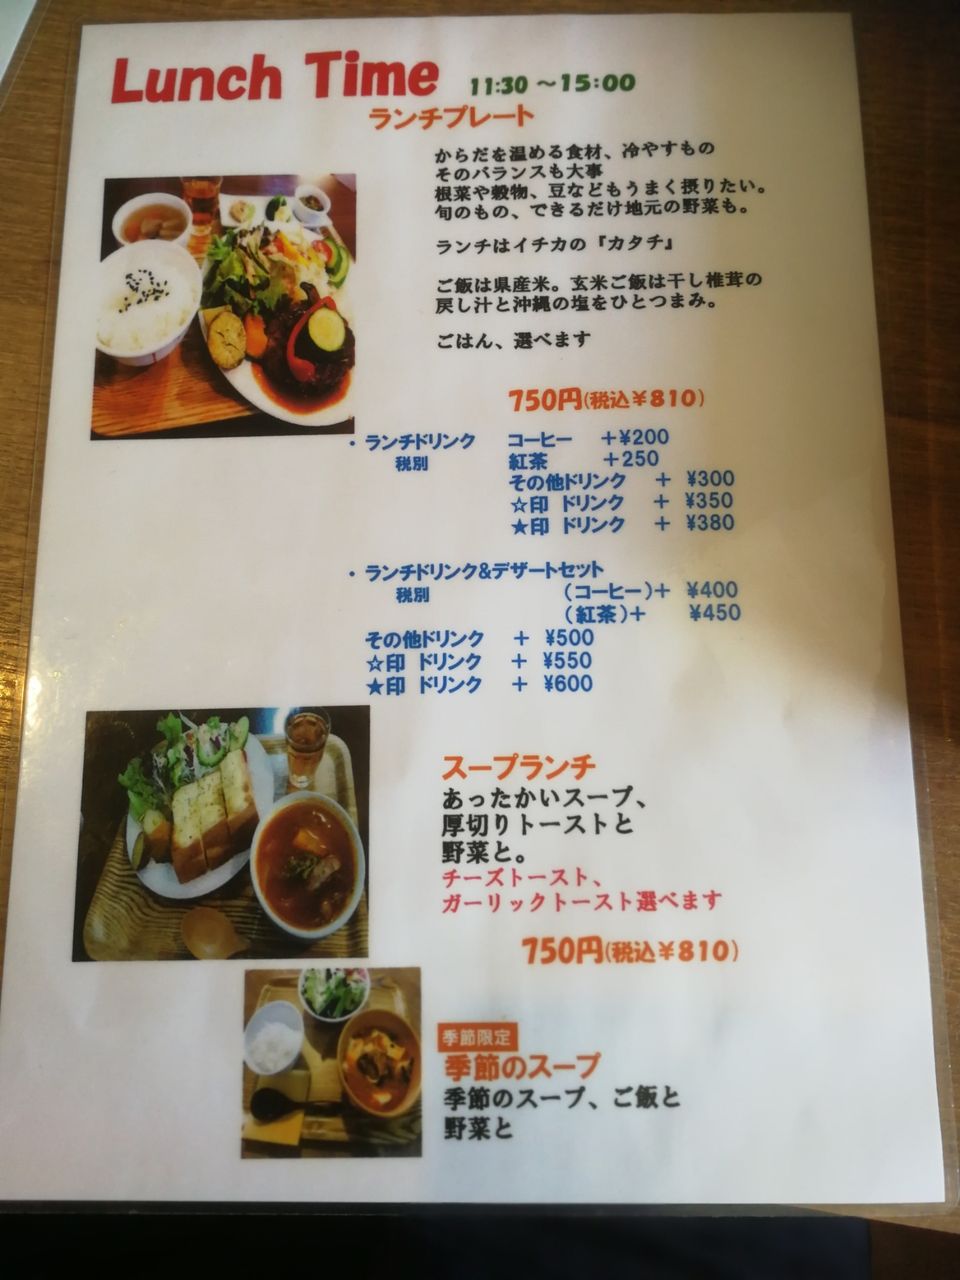 Lunch Time 11:30 ～15:00
ランチプレート
からだを温める食材、冷やすもの
そのバランスも大事
根菜や穀物、豆などもうまく摂りたい。
旬のもの、できるだけ地元の野菜も。
ランチはイチカの『カタチ』
ご飯は県産米。玄米ご飯は干し椎茸の
戻し汁と沖縄の塩をひとつまみ。
ごはん、選べます
750円(税込￥810)
・ランチドリンク コーヒー ＋¥200
税別 紅茶 ＋250
その他ドリンク ＋ ¥300
☆印 ドリンク ＋ ¥350
★印 ドリンク ＋ ¥380
・ランチドリンク&デザートセット
税別 (コーヒー)＋ ¥400
(紅茶)＋ ¥450
その他ドリンク ＋ ¥500
☆印 ドリンク ＋ ¥550
★印 ドリンク ＋ ¥600
スープランチ
あったかいスープ、
厚切りトーストと
野菜と。
チーズトースト、
ガーリックトースト選べます
750円(税込￥810)
季節限定
季節のスープ
季節のスープ、ご飯と
野菜と